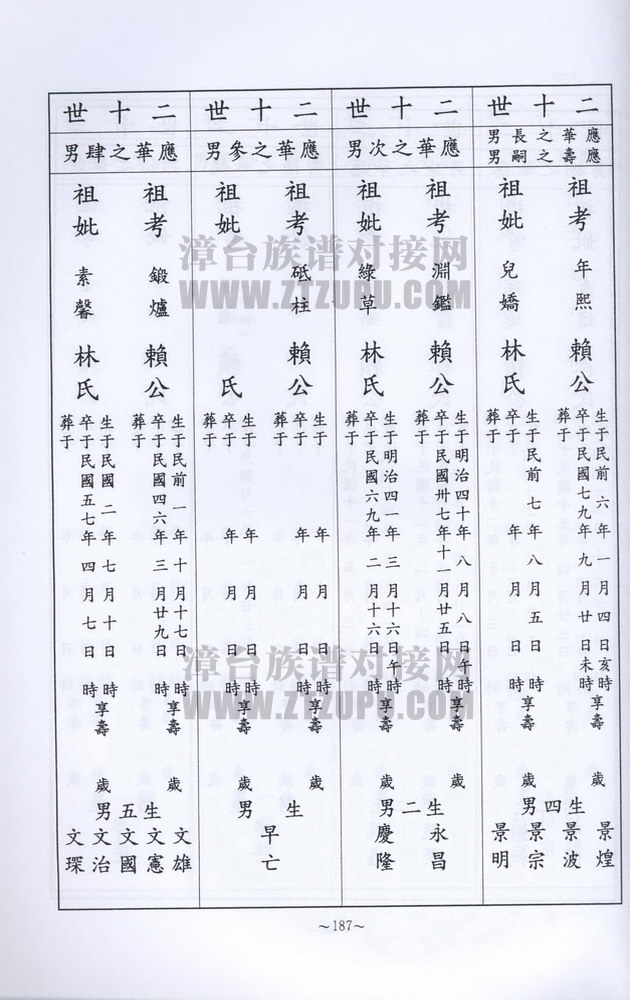 二十世
應華之長男
應壽之嗣男
祖考年熙賴公
生于民前六年一月四日亥時
卒于民國七九年九月廿日未時享壽歲
葬于
祖妣兒嬌林氏
生于民前七年八月五日時
卒于年月日時享壽歲
葬于
生四男
景煌
景波
景宗
景明
二十世
應華之次男
祖考淵鑑賴公
生于明治四十年八月八日午時
卒于民國卅七年十一月廿五日時享壽歲
葬于
祖妣綠草林氏
生于明治四一年三月十六日午時
卒于民國六九年二月十六日時享壽歲
葬于
生二男
永昌
慶隆
二十世
應華之參男
祖考砥柱賴公
生于年月日時
卒于年月日時享壽歲
葬于
祖妣氏
生于年月日時
卒于年月日時享壽歲
葬于
生男
早亡
二十世
應華之肆男
祖考鍛爐賴公
生于民前一年十月十七日時
卒于民國四六年三月廿九日時享壽歲
葬于
祖妣素馨林氏
生于民國二年七月十日時
卒于民國五七年四月七日時享壽歲
葬于
生五男
文雄
文憲
文國
文治
文琛
~187~
漳台族谱对接网
WWW.ZTZUPU.COM
漳台族谱对接网
WWW.ZTZUPU.COM